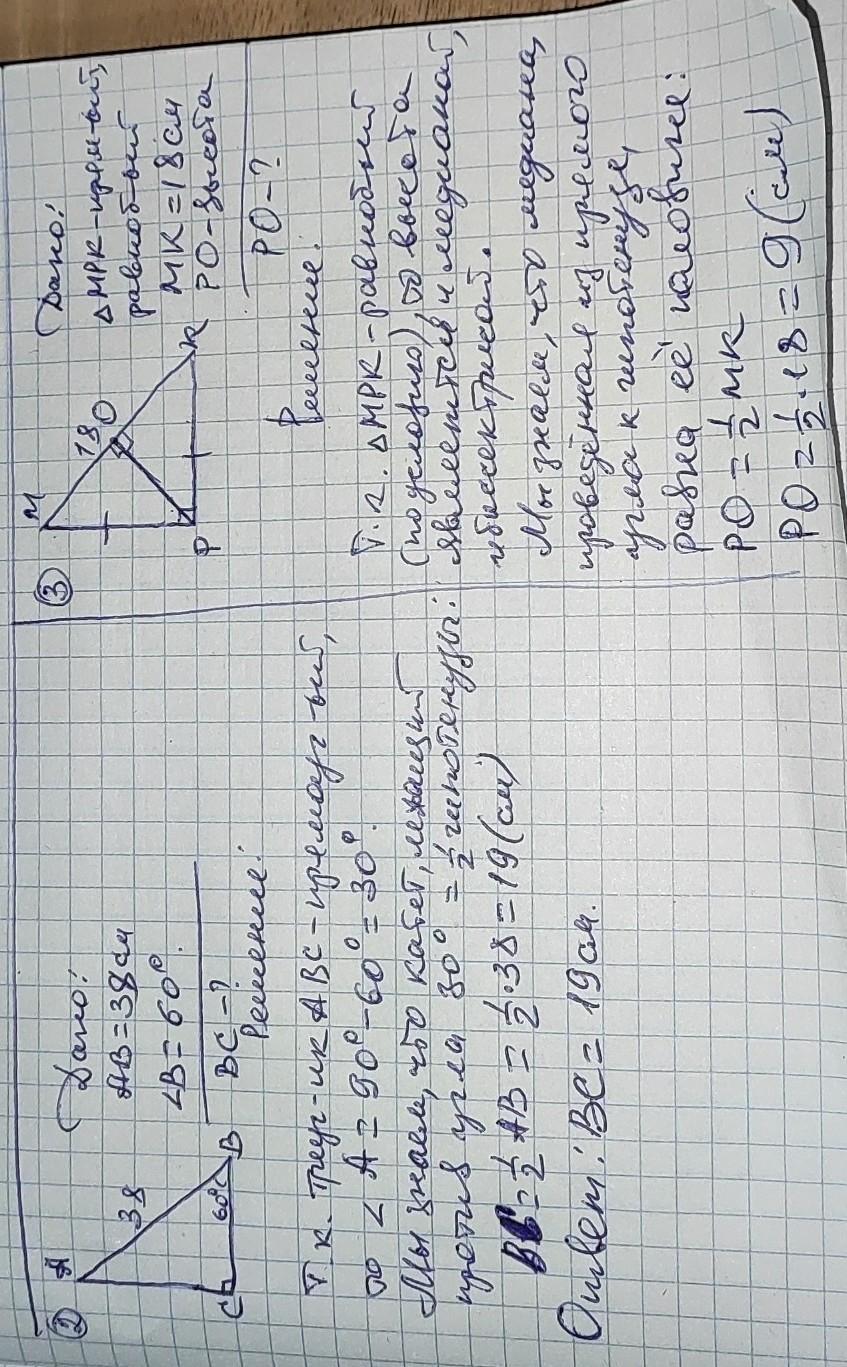 ②
A
38
60°
C
B
Дано:
AB=38см
∠B=60°.
BC-?
Решение:
Т.к. треуг-ик ABC-прямоуг-ый,
то ∠A=90°-60°=30°.
Мы знаем, что катет, лежащий
против угла 30° = 1/2 гипотенузы:
BC=1/2 AB = 1/2·38=19(см)
Ответ: BC=19см.
③
M
18
O
P
K
Дано:
△MPK-прям-ый,
равноб-ый
MK=18см
PO-высота
PO-?
Решение:
Т.к. △MPK-равнобный
(по условию), то высота
является и медианой,
и биссектрисой.
Мы знаем, что медиана,
проведённая из прямого
угла к гипотенузе,
равна её половине:
PO=1/2 MK
PO=1/2·18=9(см)